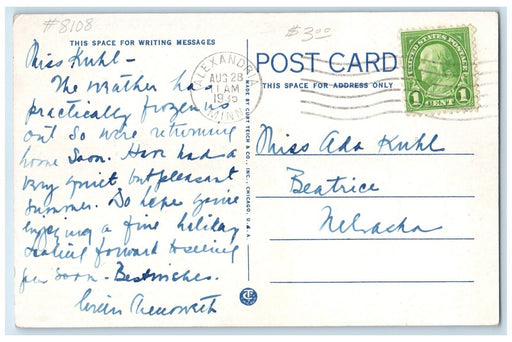 #8108
$3.00
THIS SPACE FOR WRITING MESSAGES
Miss Kuhl -
The weather has
practically frozen us
out so were returning
home soon. Have had a
very quiet but pleasant
summer. Do hope you're
enjoying a fine holiday
Looking forward to seeing
you soon - Best wishes.
ALEXANDRIA
AUG 28
11 AM
MINN
MADE BY CURT TEICH & CO., INC., CHICAGO, U.S.A.
POST CARD
THIS SPACE FOR ADDRESS ONLY
UNITED STATES POSTAGE
1 CENT 1
Miss Ada Kuhl
Beatrice
Nebraska